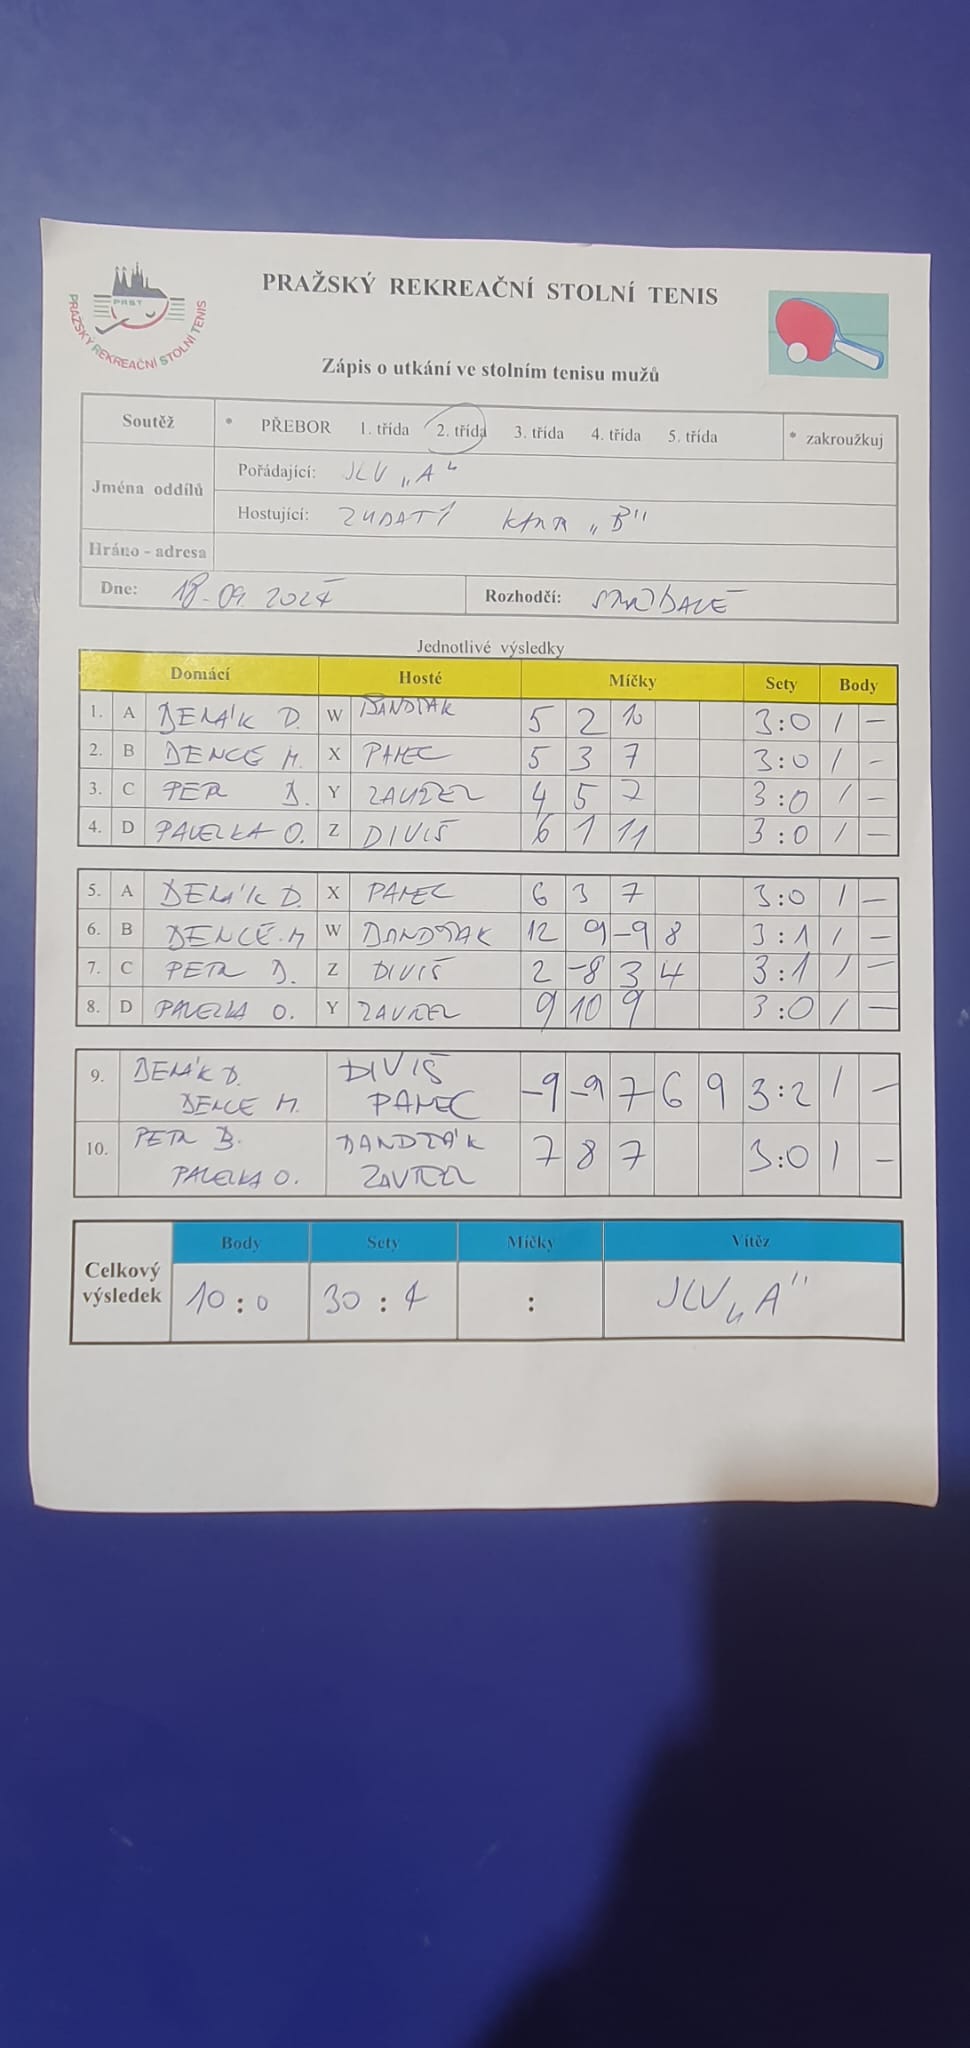 PRST
PRAŽSKÝ REKREAČNÍ STOLNÍ TENIS
PRAŽSKÝ REKREAČNÍ STOLNÍ TENIS
Zápis o utkání ve stolním tenisu mužů
Soutěž * PŘEBOR 1. třída 2. třída 3. třída 4. třída 5. třída * zakroužkuj
Jména oddílů
Pořádající: JLV „A“
Hostující: "B"
Hráno - adresa
Dne: 18.09.2024 Rozhodčí:
Jednotlivé výsledky
Domácí Hosté Míčky Sety Body
1. A D. W 5 2 10 3:0 1 -
2. B M. X PAMEC 5 3 7 3:0 1 -
3. C PETR Y 4 5 7 3:0 1 -
4. D PAVELKA O. Z DIVIŠ 6 1 11 3:0 1 -
5. A D. X PAMEC 6 3 7 3:0 1 -
6. B M W 12 9 -9 8 3:1 1 -
7. C PETR Z DIVIŠ 2 -8 3 4 3:1 1 -
8. D PAVELKA O. Y ZAVŘEL 9 10 9 3:0 1 -
9. D. DIVIŠ -9 -9 7 6 9 3:2 1 -
M. PAMEC
10. PETR 7 8 7 3:0 1 -
PAVELKA O. ZAVŘEL
Body Sety Míčky Vítěz
Celkový výsledek 10:0 30:4 : JLV „A"